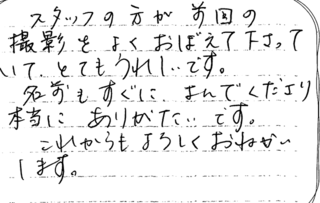 スタッフの方が前回の
撮影をよくおぼえて下さって
いて、とてもうれしいです。
名前もすぐによんでくださり
本当にありがたいです。
これからもよろしくおねがい
します。